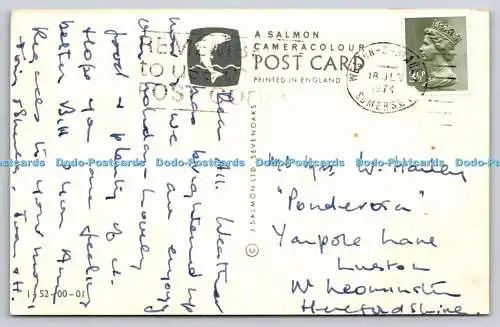 A SALMON
CAMERACOLOUR
POST CARD
PRINTED IN ENGLAND
REMEMBER
to USE
POST CO
WESTON-S-MARE
18 JLY
1974
SOMERSET
© J. SALMON LTD., SEVENOAKS
Weather
now has brightened up
we are enjoying
our holiday - lovely
food & plenty of it.
Hope you are feeling
better Bill & you Ann
Regards to your mum
1-52-00-01
Mr & Mrs W. Hanley
"Ponderosa"
Yarpole Lane
Luston
Nr Leominster
Herefordshire
Dodo-Postcards Dodo-Postcards Dodo-Postcards Dodo-Postcards Dodo-Postcards Dodo-Postcards